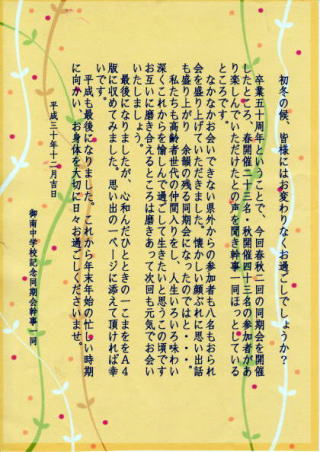 初冬の候、皆様にはお変わりなくお過ごしでしょうか？
卒業五十周年ということで、今回春秋二回の同期会を開催
したところ、春開催二十三名・秋開催四十三名の参加者があ
り楽しんでいただけたとの声を聞き幹事一同ほっとしている
ところです。
なかなかお会いできない県外からの参加者も八名もおられ
会を盛り上げていただきました。懐かしい顔ぶれに思い出話
も盛り上がり　余韻の残る同期会になったのではと・・・。
私たちも高齢者世代の仲間入りをし、人生いろいろ味わい
深くこれからを愉しんで過ごして生きたいと思うこの頃です
お互いに磨き合えるところは磨きあって次回も元気でお会い
いたしましょう。
最後になりましたが、心和んだひとときの一こまををＡ４
版に収めてみました。思い出の一ページに添えて頂ければ幸
いです。
平成も最後になりました。これから年末年始の忙しい時期
に向かい、お身体を大切に日々お過ごしくださいませ。
平成三十年十二月吉日
御南中学校記念同期会幹事一同